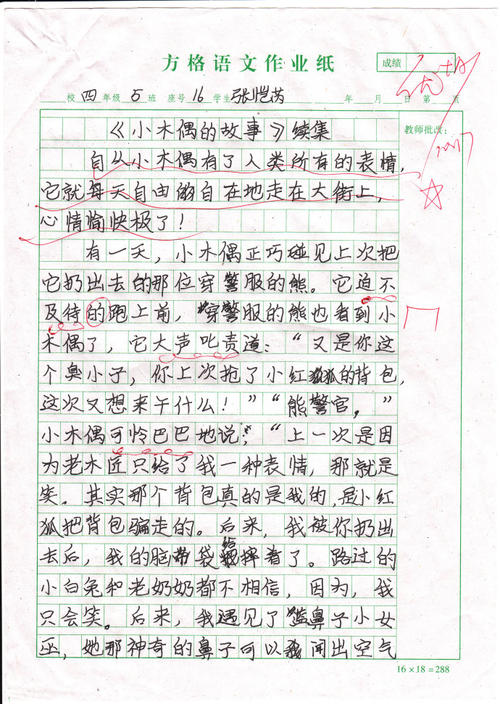 方格语文作业纸
成绩
校 四 年级 5 班 座号 16 学生 张恺芮 年 月 日 第 页
《小木偶的故事》续集
教师批改：
自从小木偶有了人类所有的表情，
它就每天自由自在地走在大街上，
心情愉快极了！
有一天，小木偶正巧碰见上次把
它扔出去的那位穿警服的熊。它迫不
及待的跑上前，穿警服的熊也看到小
木偶了，它大声叱责道：“又是你这
个臭小子，你上次抢了小红狐狐的背包，
这次又想来干什么！”“熊警官。”
小木偶可怜巴巴地说：“上一次是因
为老木匠只给了我一种表情，那就是
笑。其实那个背包真的是我的，是小红
狐把背包骗走的。后来，我被你扔出
去后，我的脑袋给摔着了。路过的
小白兔和老奶奶都不相信，因为，我
只会笑。后来，我遇见了蓝鼻子小女
巫，她那神奇的鼻子可以闻出空气
16×18=288